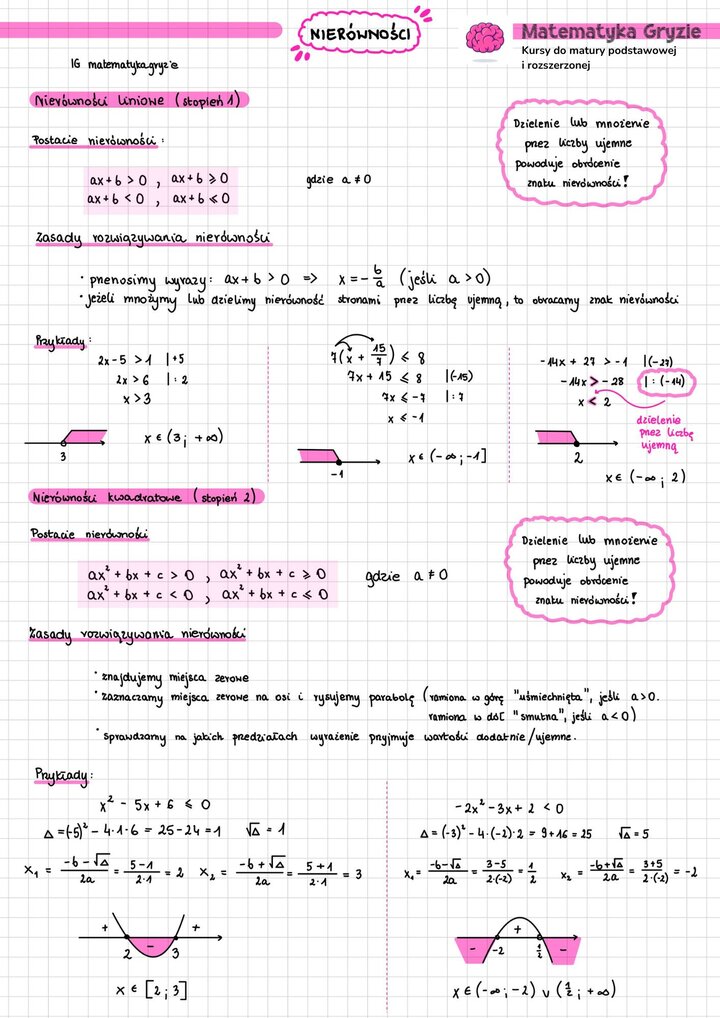 NIERÓWNOŚCI
Matematyka Gryzie
Kursy do matury podstawowej
i rozszerzonej
IG matematyka.gryzie
Nierówności liniowe (stopień 1)
Dzielenie lub mnożenie
przez liczby ujemne
powoduje obrócenie
znaku nierówności!
Postacie nierówności:
ax+b > 0 , ax+b ⩾ 0 gdzie a ≠ 0
ax+b < 0 , ax+b ⩽ 0
Zasady rozwiązywania nierówności
• przenosimy wyrazy: ax+b > 0 => x = - b/a (jeśli a > 0)
• jeżeli mnożymy lub dzielimy nierówność stronami przez liczbę ujemną, to obracamy znak nierówności
Przykłady:
2x-5 > 1 |+5
2x > 6 |:2
x > 3
3
x ∈ (3; +∞)
7(x + 15/7) ⩽ 8
7x + 15 ⩽ 8 |(-15)
7x ⩽ -7 |:7
x ⩽ -1
-1
x ∈ (-∞; -1]
-14x + 27 > -1 |(-27)
-14x > -28 |:(-14)
x < 2
dzielenie
przez liczbę
ujemną
2
x ∈ (-∞; 2)
Nierówności kwadratowe (stopień 2)
Postacie nierówności
ax² + bx + c > 0 , ax² + bx + c ⩾ 0 gdzie a ≠ 0
ax² + bx + c < 0 , ax² + bx + c ⩽ 0
Dzielenie lub mnożenie
przez liczby ujemne
powoduje obrócenie
znaku nierówności!
Zasady rozwiązywania nierówności
• znajdujemy miejsca zerowe
• zaznaczamy miejsca zerowe na osi i rysujemy parabolę (ramiona w górę "uśmiechnięta", jeśli a>0.
ramiona w dół "smutna", jeśli a<0)
• sprawdzamy na jakich przedziałach wyrażenie przyjmuje wartości dodatnie/ujemne.
Przykłady:
x² - 5x + 6 ⩽ 0
△ = (-5)² - 4·1·6 = 25-24 = 1 √△ = 1
x₁ = (-b-√△)/2a = (5-1)/(2·1) = 2 x₂ = (-b+√△)/2a = (5+1)/(2·1) = 3
+ - +
2 3
x ∈ [2; 3]
-2x² - 3x + 2 < 0
△ = (-3)² - 4·(-2)·2 = 9+16 = 25 √△ = 5
x₁ = (-b-√△)/2a = (3-5)/(2·(-2)) = 1/2 x₂ = (-b+√△)/2a = (3+5)/(2·(-2)) = -2
- + -
-2 1/2
x ∈ (-∞; -2) ∪ (1/2; +∞)